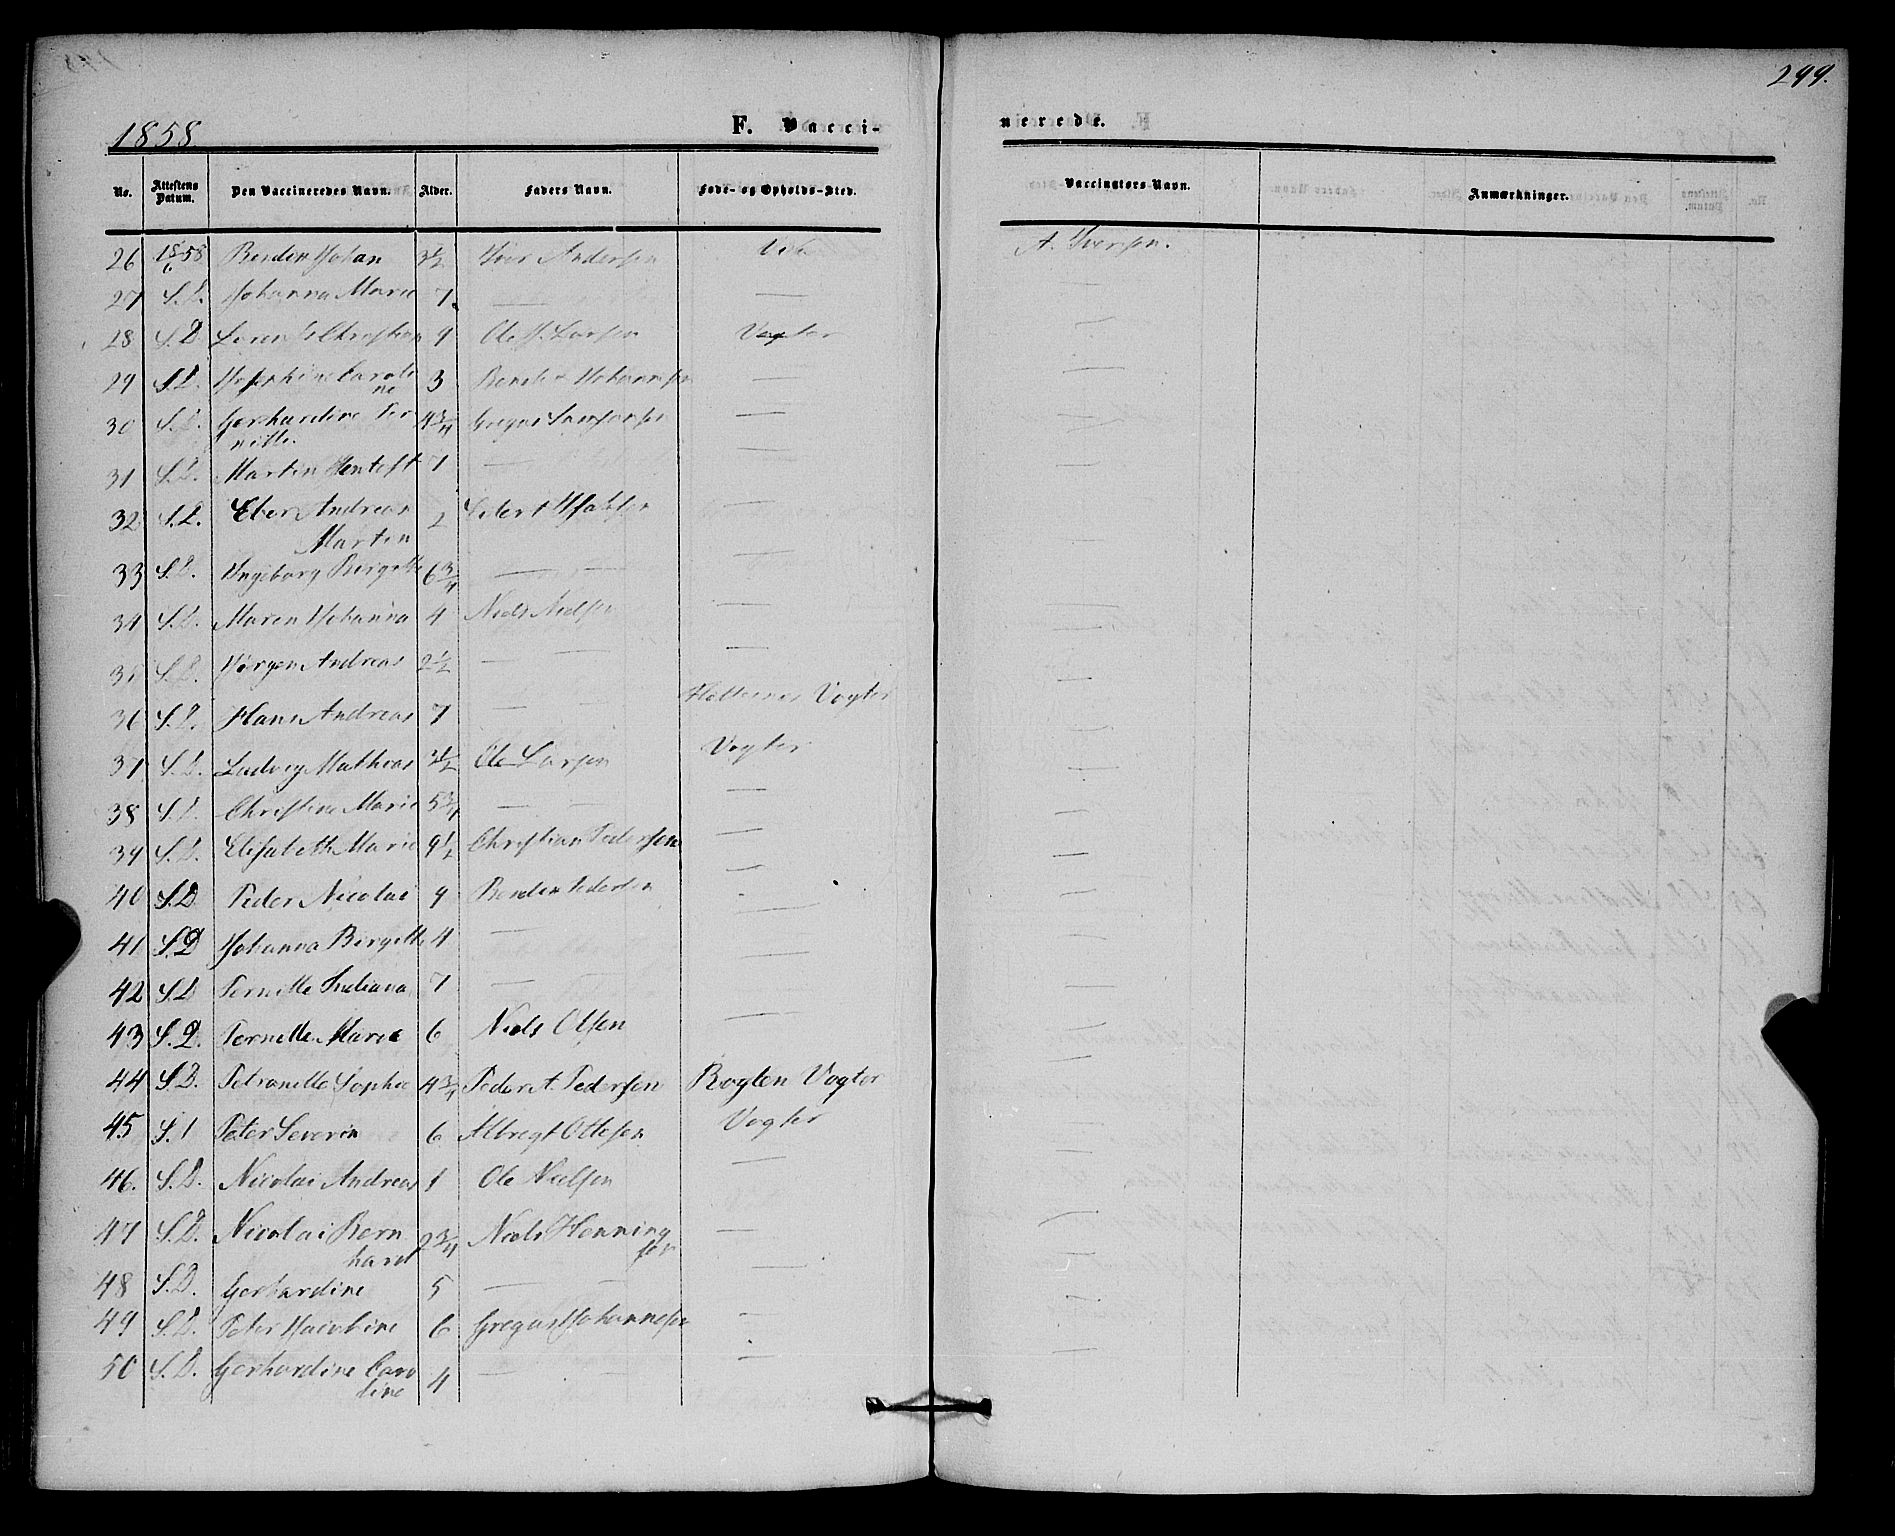 299.
1858
F. Vacci-
nerede.
No. Attestens Datum. Den Vaccineredes Navn. Alder. Faders Navn. Føde- og Opholds-Sted. Vaccinators Navn. Anmærkninger.
26 18/6 58 Berden Johan 3½ Iver Andersen A. Iversen.
27 S.D. Johanna Marie 7 — —
28 S.D. Christian 9 Ole Larsen Vogter —
29 S.D. Josephine Caroli
ne 3 Johannesen — —
30 S.D. Gerhardine Per
nille 4¾ Gregus — —
31 S.D. Martin 7 — — —
32 S.D. Andreas
Martin 2 — —
33 S.D. Ingeborg Birgitte 6¾ — — —
34 S.D. Maren Johanna 4 Niels Nielsen — —
35 S.D. Jørgen Andreas 2½ — — —
36 S.D. Hans Andreas 7 — Vogter —
37 S.D. Ludvig Mathias 3½ Ole Larsen Vogter —
38 S.D. Christine Marie 5¾ — — —
39 S.D. Elisabeth Marie 9½ Christian Pedersen — —
40 S.D. Peder Nicolai 9 Berden Pedersen — —
41 S.D. Johanna Birgitte 4 — — —
42 S.D. Pernille Juliana 7 — — —
43 S.D. Pernille Marie 6 Niels Olsen — —
44 S.D. Petronelle Sophie 4¾ Peder A. Pedersen Vogter —
45 S.D. Peter Severin 6 Albregt Ottesen Vogter —
46. S.D. Nicolai Andreas 1 Ole Nielsen — —
47 S.D. Nicolai Bern
hard 2¾ Niels Henning
sen — —
48 S.D. Gerhardine 5 — — —
49 S.D. Peter 6 Gregus Johannesen — —
50 S.D. Gerhardine Caro
line 4 — — —